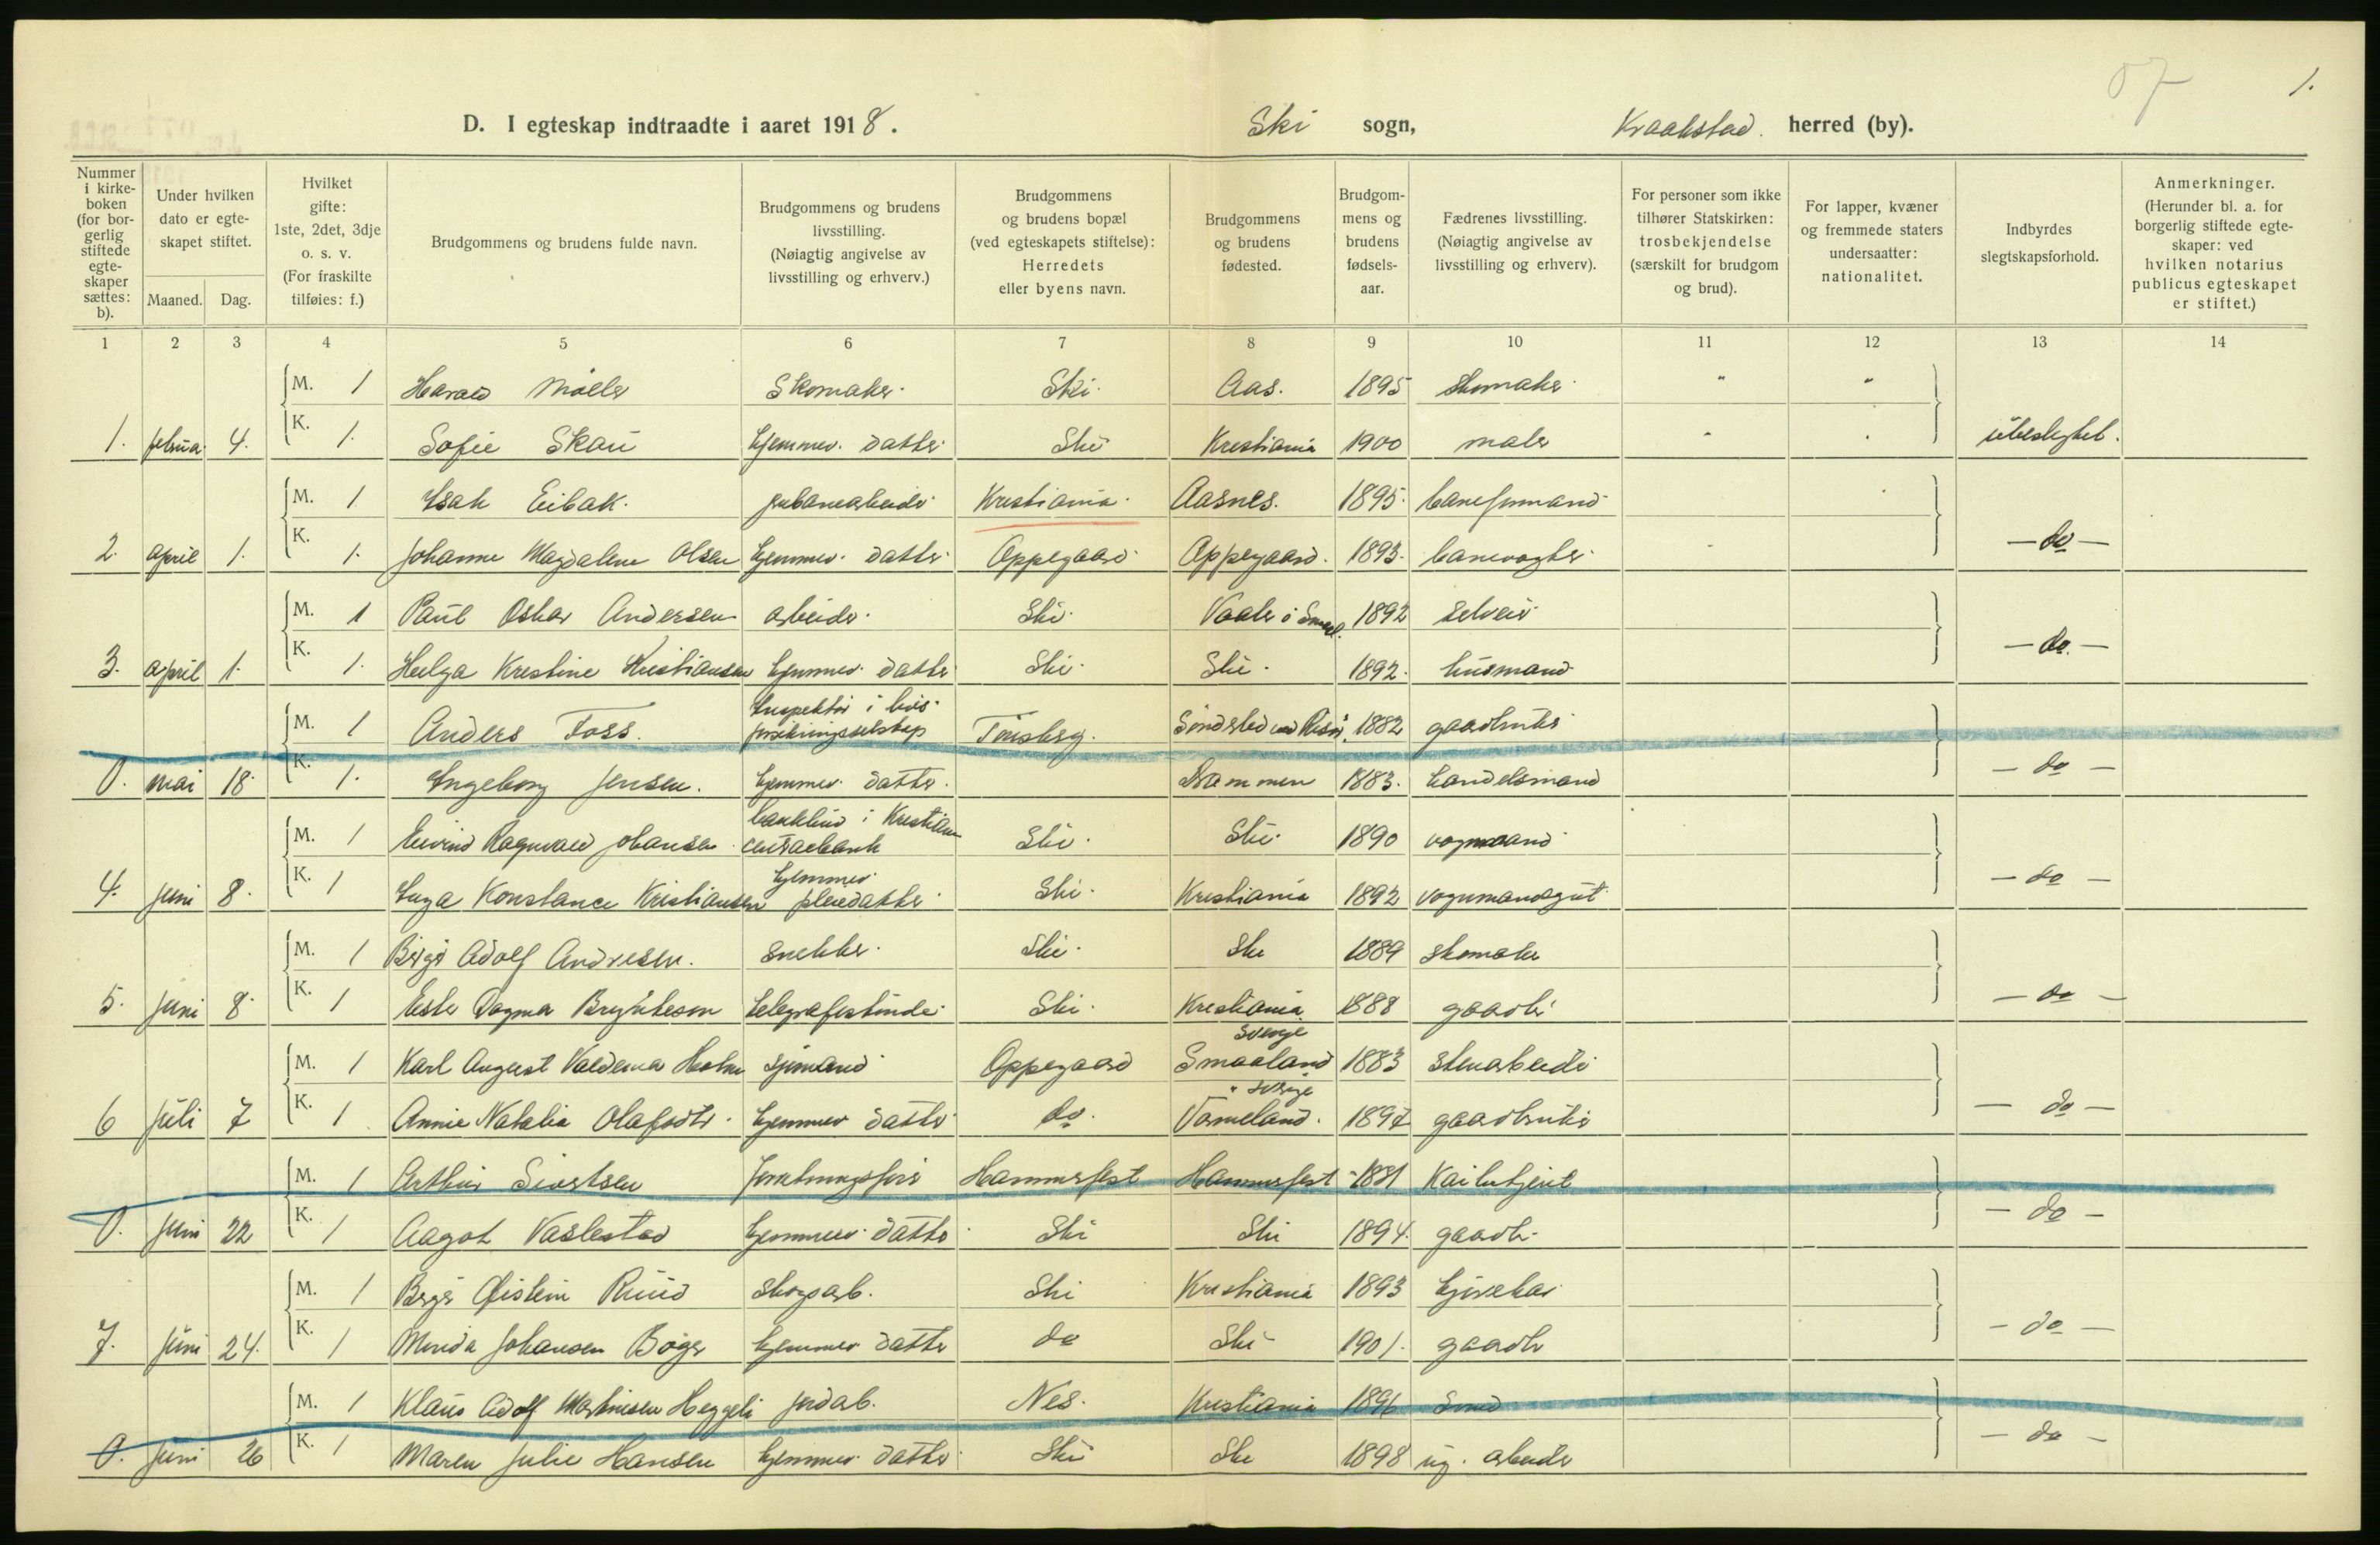 07
1.
D. I egteskap indtraadte i aaret 1918. Ski sogn, Kraakstad. herred (by).
Nummer i kirkeboken (for borgerlig stiftede egteskaper sættes: b).
Under hvilken dato er egteskapet stiftet.
Maaned. Dag.
Hvilket gifte: 1ste, 2det, 3dje o. s. v. (For fraskilte tilføies: f.)
Brudgommens og brudens fulde navn.
Brudgommens og brudens livsstilling. (Nøiagtig angivelse av livsstilling og erhverv.)
Brudgommens og brudens bopæl (ved egteskapets stiftelse): Herredets eller byens navn.
Brudgommens og brudens fødested.
Brudgommens og brudens fødselsaar.
Fædrenes livsstilling. (Nøiagtig angivelse av livsstilling og erhverv).
For personer som ikke tilhører Statskirken: trosbekjendelse (særskilt for brudgom og brud).
For lapper, kvæner og fremmede staters undersaatter: nationalitet.
Indbyrdes slegtskapsforhold.
Anmerkninger. (Herunder bl. a. for borgerlig stiftede egteskaper: ved hvilken notarius publicus egteskapet er stiftet.)
1 2 3 4 5 6 7 8 9 10 11 12 13 14
M. 1 Harald Møller Skomaker. Ski. Aas. 1895 skomaker. " "
1. februa. 4. K. 1. Sofie Skau hjemmev. datter. Ski Kristiania 1900 maler " " ubeslegtet.
M. 1 Isak Eibak. Kristiania. Aasnes. 1895.
2. april 1. K. 1. Johanne Magdalene Olsen hjemmev. datter. Oppegaard Oppegaard. 1893. banevogter. - do -
M. 1 Paul Oskar Andersen arbeider. Ski. Vaaler i Smaal. 1892 selveier
3. april 1. K. 1. Helga Kristine Kristiansen hjemmev. datter Ski. Ski. 1892. husmand - do. -
M. 1 Anders Foss. Inspektør i livsforsikringsselskap Tønsberg. Søndeled ved Risør. 1882 gaardbruker
0. mai 18. K. 1. Ingeborg Jensen. hjemmev. datter. Drammen 1883. handelsmand - do -
M. 1 Eivind Ragnvald Johansen i Kristiania centralbank Ski. Ski. 1890 vognmand
4. juni 8. K. 1 Inga Konstance Kristiansen hjemmev. pleiedatter Ski. Kristiania 1892 vognmandsgut - do -
M. 1 Birger Adolf Andresen. snekker. Ski. Ski 1889 skomaker
5. juni 8. K. 1 Ester Dagmar telegrafistinde. Ski. Kristiania 1888 gaardbr - do -
M. 1 Karl August Valdemar Holm sjømand Oppegaard Sverige Smaaland 1883 stenarbeider
6 juli 7 K. 1 Annie Natalia Olafsdtr. hjemmev datter do. " Sverige Värmeland. 1897 gaardbruker - do -
M. 1 Arthur Sivertsen forretningsfører Hammerfest Hammerfest 1881
0. juni 22 K. 1 Aagot Vaslestad hjemmev. datter Ski Ski 1894. gaardbr. - do -
M. 1 Birger Øistein Ruud skogsarb. Ski Kristiania 1893
7. juni 24. K. 1 Minda Johansen Bøger hjemmev datter do Ski 1901. gaardbr - do -
M. 1 Klaus Adolf Martinisen Heggeli jordarb. Nes. Kristiania 1896 Smed
0. juni 26 K. 1 Maren Julie Hansen hjemmev. datter. Ski Ski 1898 arbeider - do -